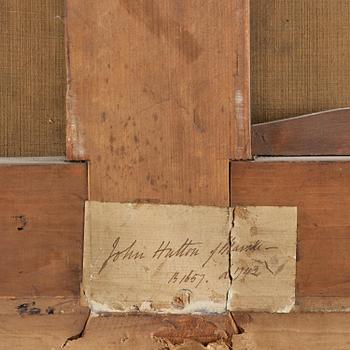 John Hatton of
B 1657. d 1742